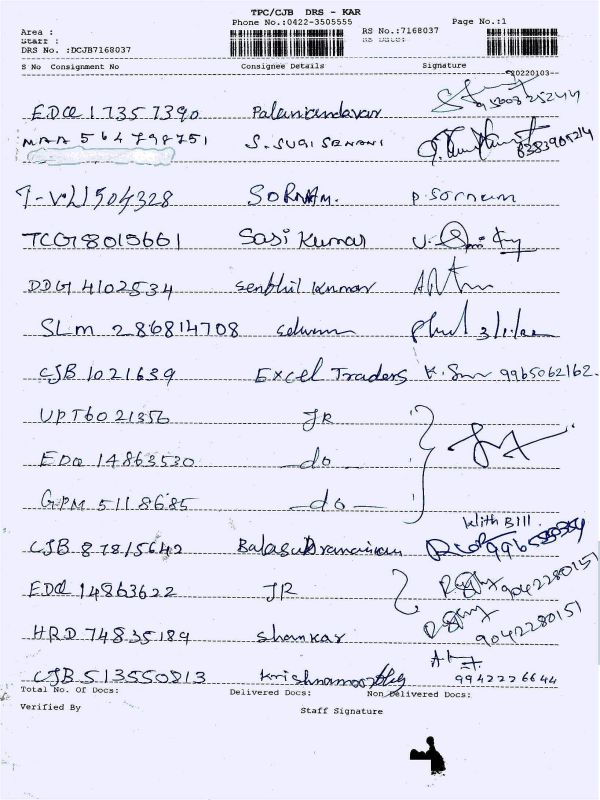 TPC/CJB DRS - KAR
Area : Phone No.:0422-3505555 Page No.:1
Staff : RS No.:7168037
DRS No. :DCJB7168037 RS Date:
S No Consignment No Consignee Details Signature
20220103--
EDQ 17357390 Palaniandavar
MAA 564798751 S. SUGI SENANI 8383905214
SORNAM. P. Sornam
TCG78015661 Sasi Kumar
DDG 4102534 Senthil Kumar
SLM 286814708 Selvam
CJB 1021639 Excel Traders 9965062162.
UPT6021356 JR
EDQ 14863530 -do-
GPM 5118685 -do-
With Bill.
CJB 87815642 Balasubramanian
EDQ 14863622 JR 9042280151
HRD 74835189 Shankar 9042280151
CJB 513550813 Krishnamoorthy 9942226644
Total No. Of Docs: Delivered Docs: Non Delivered Docs:
Verified By Staff Signature